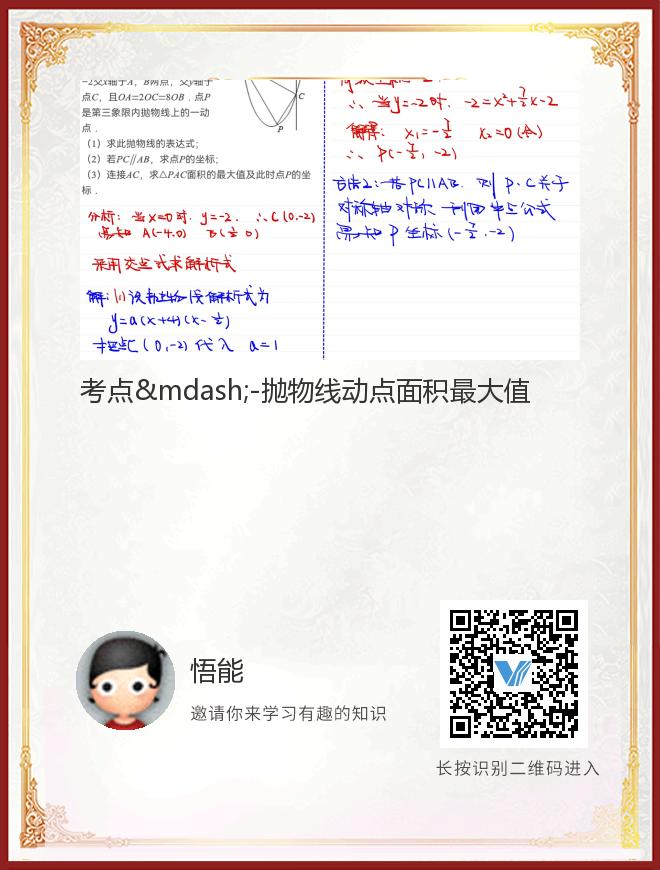 −2交x轴于A，B两点，交y轴于
点C，且OA=2OC=8OB．点P
是第三象限内抛物线上的一动
点．
（1）求此抛物线的表达式；
（2）若PC∥AB，求点P的坐标；
（3）连接AC，求△PAC面积的最大值及此时点P的坐
标．
C
P
分析: 当x=0时. y=-2. ∴C(0,-2)
易知 A(-4,0) B(½ 0)
采用交点式求解析式
解:(1)设抛物线解析式为
y=a(x+4)(x-½)
把点C(0,-2)代入 a=1
∴当y=-2时. -2=x²+7/2x-2
解得: x₁=-7/2 x₂=0(舍)
∴ P(-7/2, -2)
方法2:若PC∥AB. 则P、C关于
对称轴对称 利用中点公式
易知P坐标(-7/2,-2)
考点&mdash;-抛物线动点面积最大值
悟能
邀请你来学习有趣的知识
长按识别二维码进入